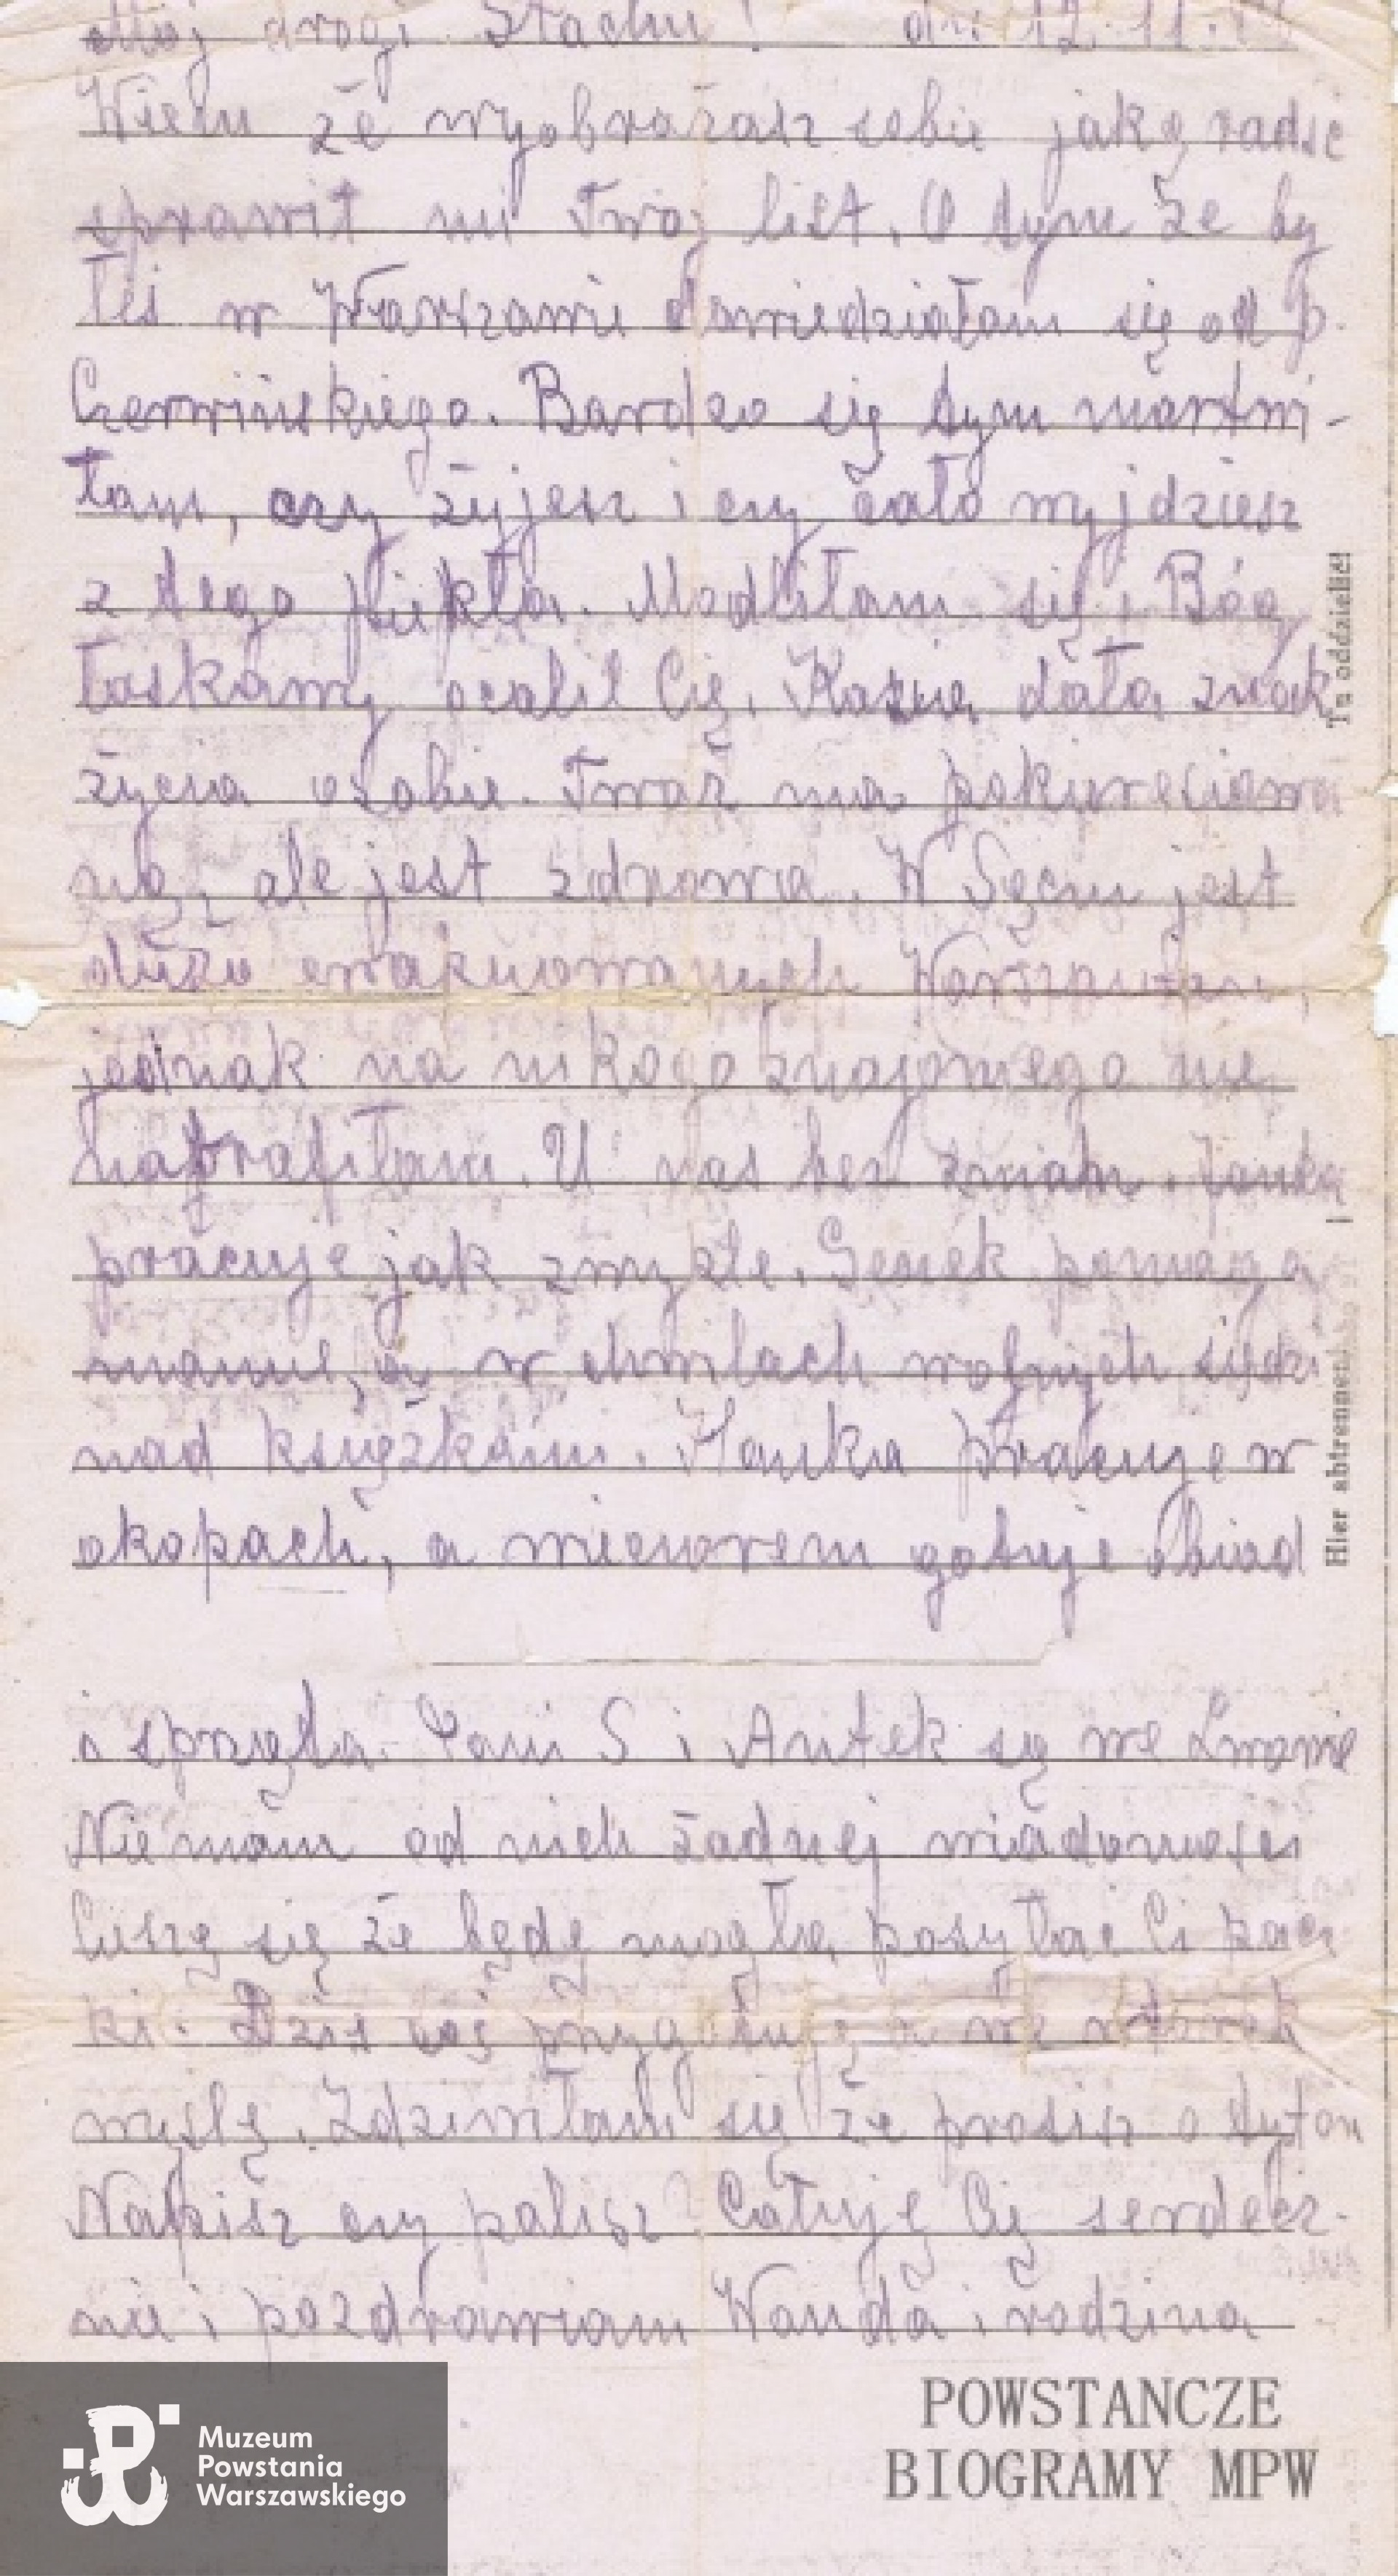 Mój drogi Stachu! dn. 12.11.
Wiem że wyobrażasz sobie jaką radść
sprawił mi Twój list. O tym że by
łeś w Warszawie dowiedziałam się od p.
Czerwińskiego. Bardzo się tym martwi-
łam, czy żyjesz i czy cało wyjdziesz
z tego piekła. Modliłam się i Bóg
łaskawy ocalił Cię. Kazia dała znak
życia o sobie. Twarz ma pokiereszowa
ną, ale jest zdrowa. W Sączu jest
dużo ewakuowanych Warszawian,
jednak na nikogo znajomego nie
natrafiłam. U nas bez zmian. Janka
pracuje jak zwykle. Genek pomaga
mamie, a w chwilach wolnych siedzi
nad książkami. Hanka pracuje w
okopach, a wieczorem gotuje obiad
i sprząta. Pani S i Antek są we Lwowie
Nie mam od nich żadnej wiadomości
Cieszę się że będę mogła posyłać Ci pacz
ki. Dziś coś przygotuję, a we wtorek
wyślę. Zdziwiłam się że prosisz o tytoń
Napisz czy palisz? Całuję Cię serdecz-
nie i pozdrawiam Wanda i rodzina
Tu oddzielić!
Hier abtrennen!
POWSTANCZE
BIOGRAMY MPW
Muzeum
Powstania
Warszawskiego